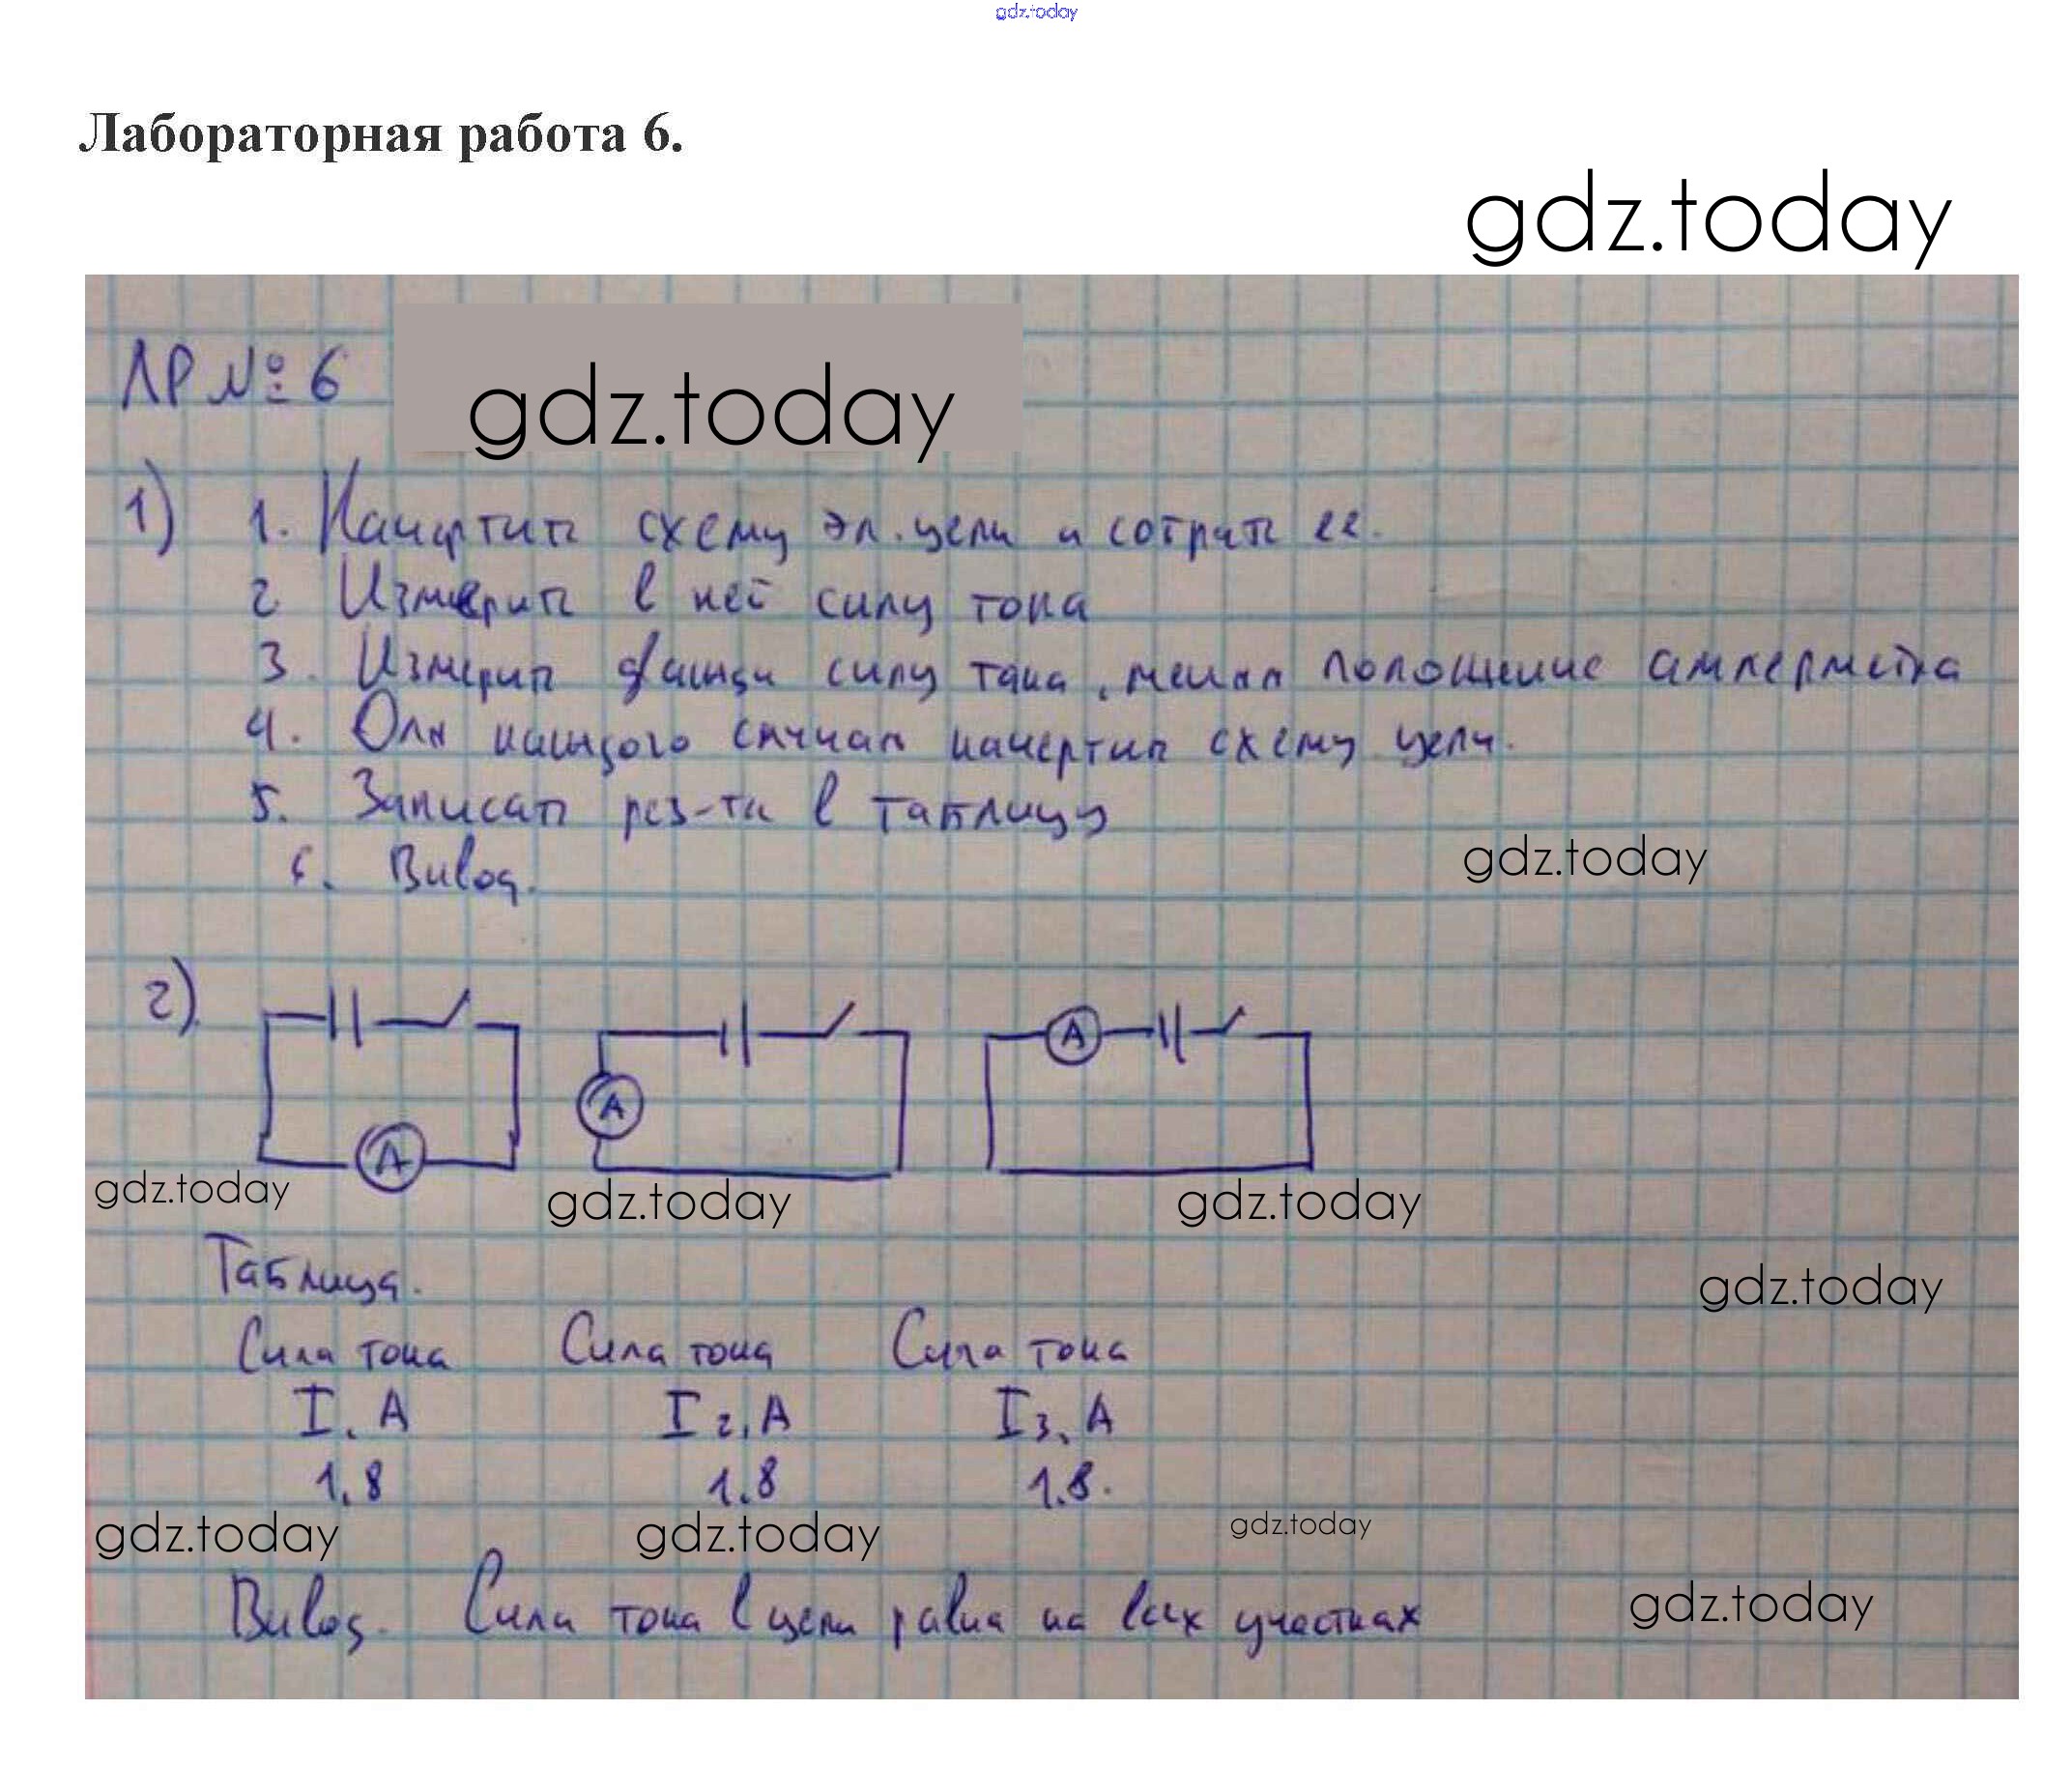 gdz.today
Лабораторная работа 6.
gdz.today
ЛР №6
gdz.today
1) 1. Начертить схему эл. цепи и собрать ее.
2 Измерить в ней силу тока
3. Измерить дважды силу тока, меняя положение амперметра
4. Для каждого случая начертить схему цепи.
5. Записать рез-ты в таблицу
6. Вывод.
gdz.today
2)
A
A
A
gdz.today
gdz.today
gdz.today
Таблица.
gdz.today
Сила тока Сила тока Сила тока
I, A I2, A I3, A
1,8 1.8 1.8.
gdz.today
gdz.today
gdz.today
Вывод. Сила тока в цепи равна на всех участках
gdz.today